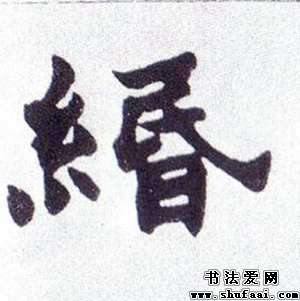 緡
书法爱网
www.shufaai.com